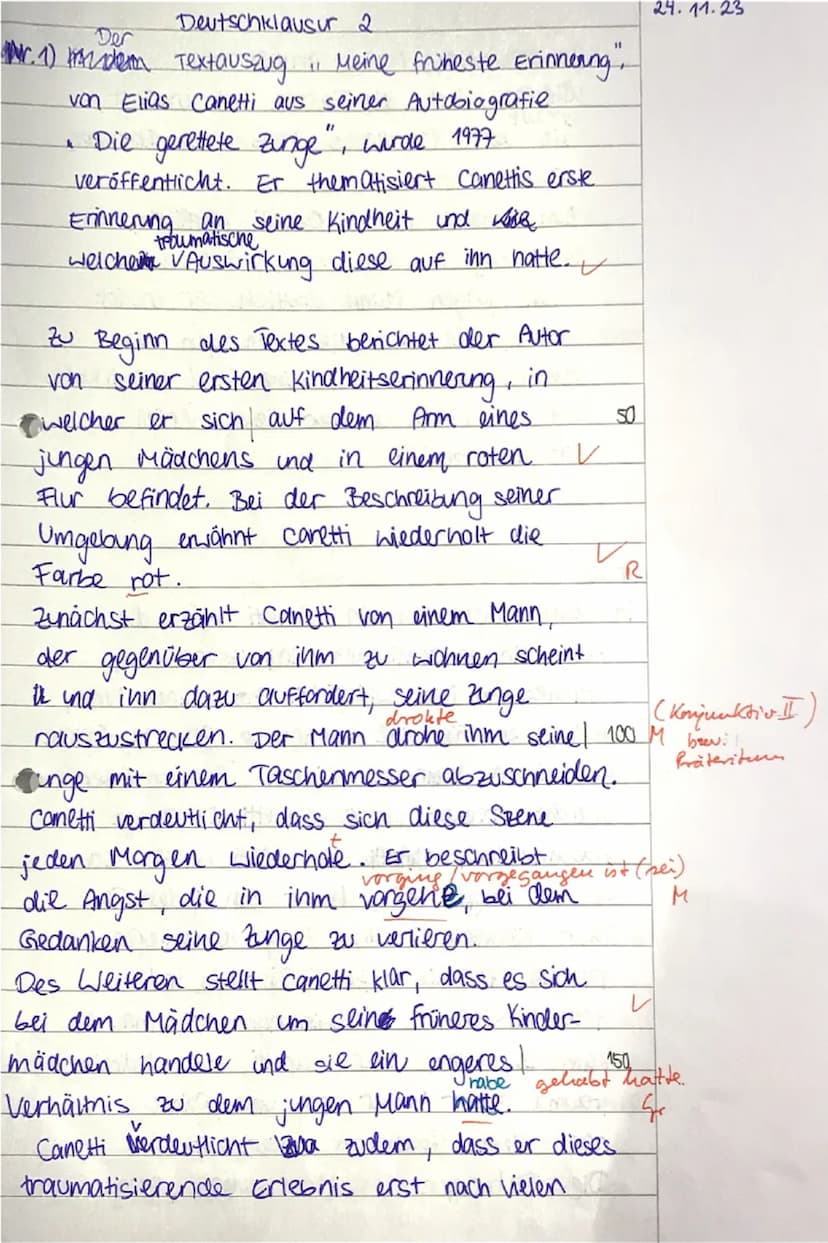 Deutschklausur 2 24.11.23
Nr. 1) Der Textauszug „Meine früheste Erinnerung",
von Elias Canetti aus seiner Autobiografie
„Die gerettete Zunge", wurde 1977
veröffentlicht. Er thematisiert Canettis erste
Erinnerung an seine Kindheit und
traumatische
welche Auswirkung diese auf ihn hatte. ✓
Zu Beginn des Textes berichtet der Autor
von seiner ersten Kindheitserinnerung, in
welcher er sich| auf dem Arm eines 50
jungen Mädchens und in einem roten ✓
Flur befindet. Bei der Beschreibung seiner
Umgebung erwähnt Canetti wiederholt die
Farbe rot. ✓ R
Zunächst erzählt Canetti von einem Mann,
der gegenüber von ihm zu wohnen scheint
und ihn dazu auffordert, seine Zunge
drohte (Konjunktiv II)
rauszustrecken. Der Mann drohe ihm seine| 100 M bzw.
Präteritum
Zunge mit einem Taschenmesser abzuschneiden.
Canetti verdeutlicht, dass sich diese Szene
t
jeden Morgen wiederhole. Er beschreibt
vorging / vorgegangen ist (sei)
die Angst, die in ihm vorgehe, bei dem M
Gedanken seine Zunge zu verlieren.
Des Weiteren stellt Canetti klar, dass es sich
bei dem Mädchen um sein früheres Kinder- ✓
mädchen handele und sie ein engeres| 150
habe gehabt hatte.
Verhältnis zu dem jungen Mann hatte. Gr
Canetti verdeutlicht zudem, dass er dieses
traumatisierende Erlebnis erst nach vielen